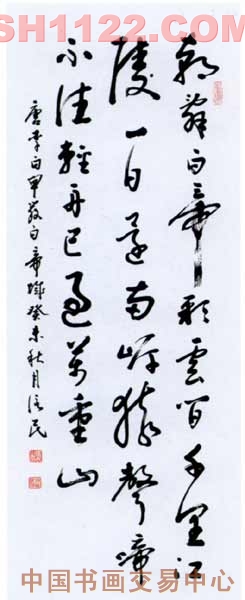 SH1122.COM
朝辭白帝彩雲間千里江
陵一日還兩岸猿聲啼
不住輕舟已過萬重山
唐李白早發白帝城癸未秋月信民
中国书画交易中心